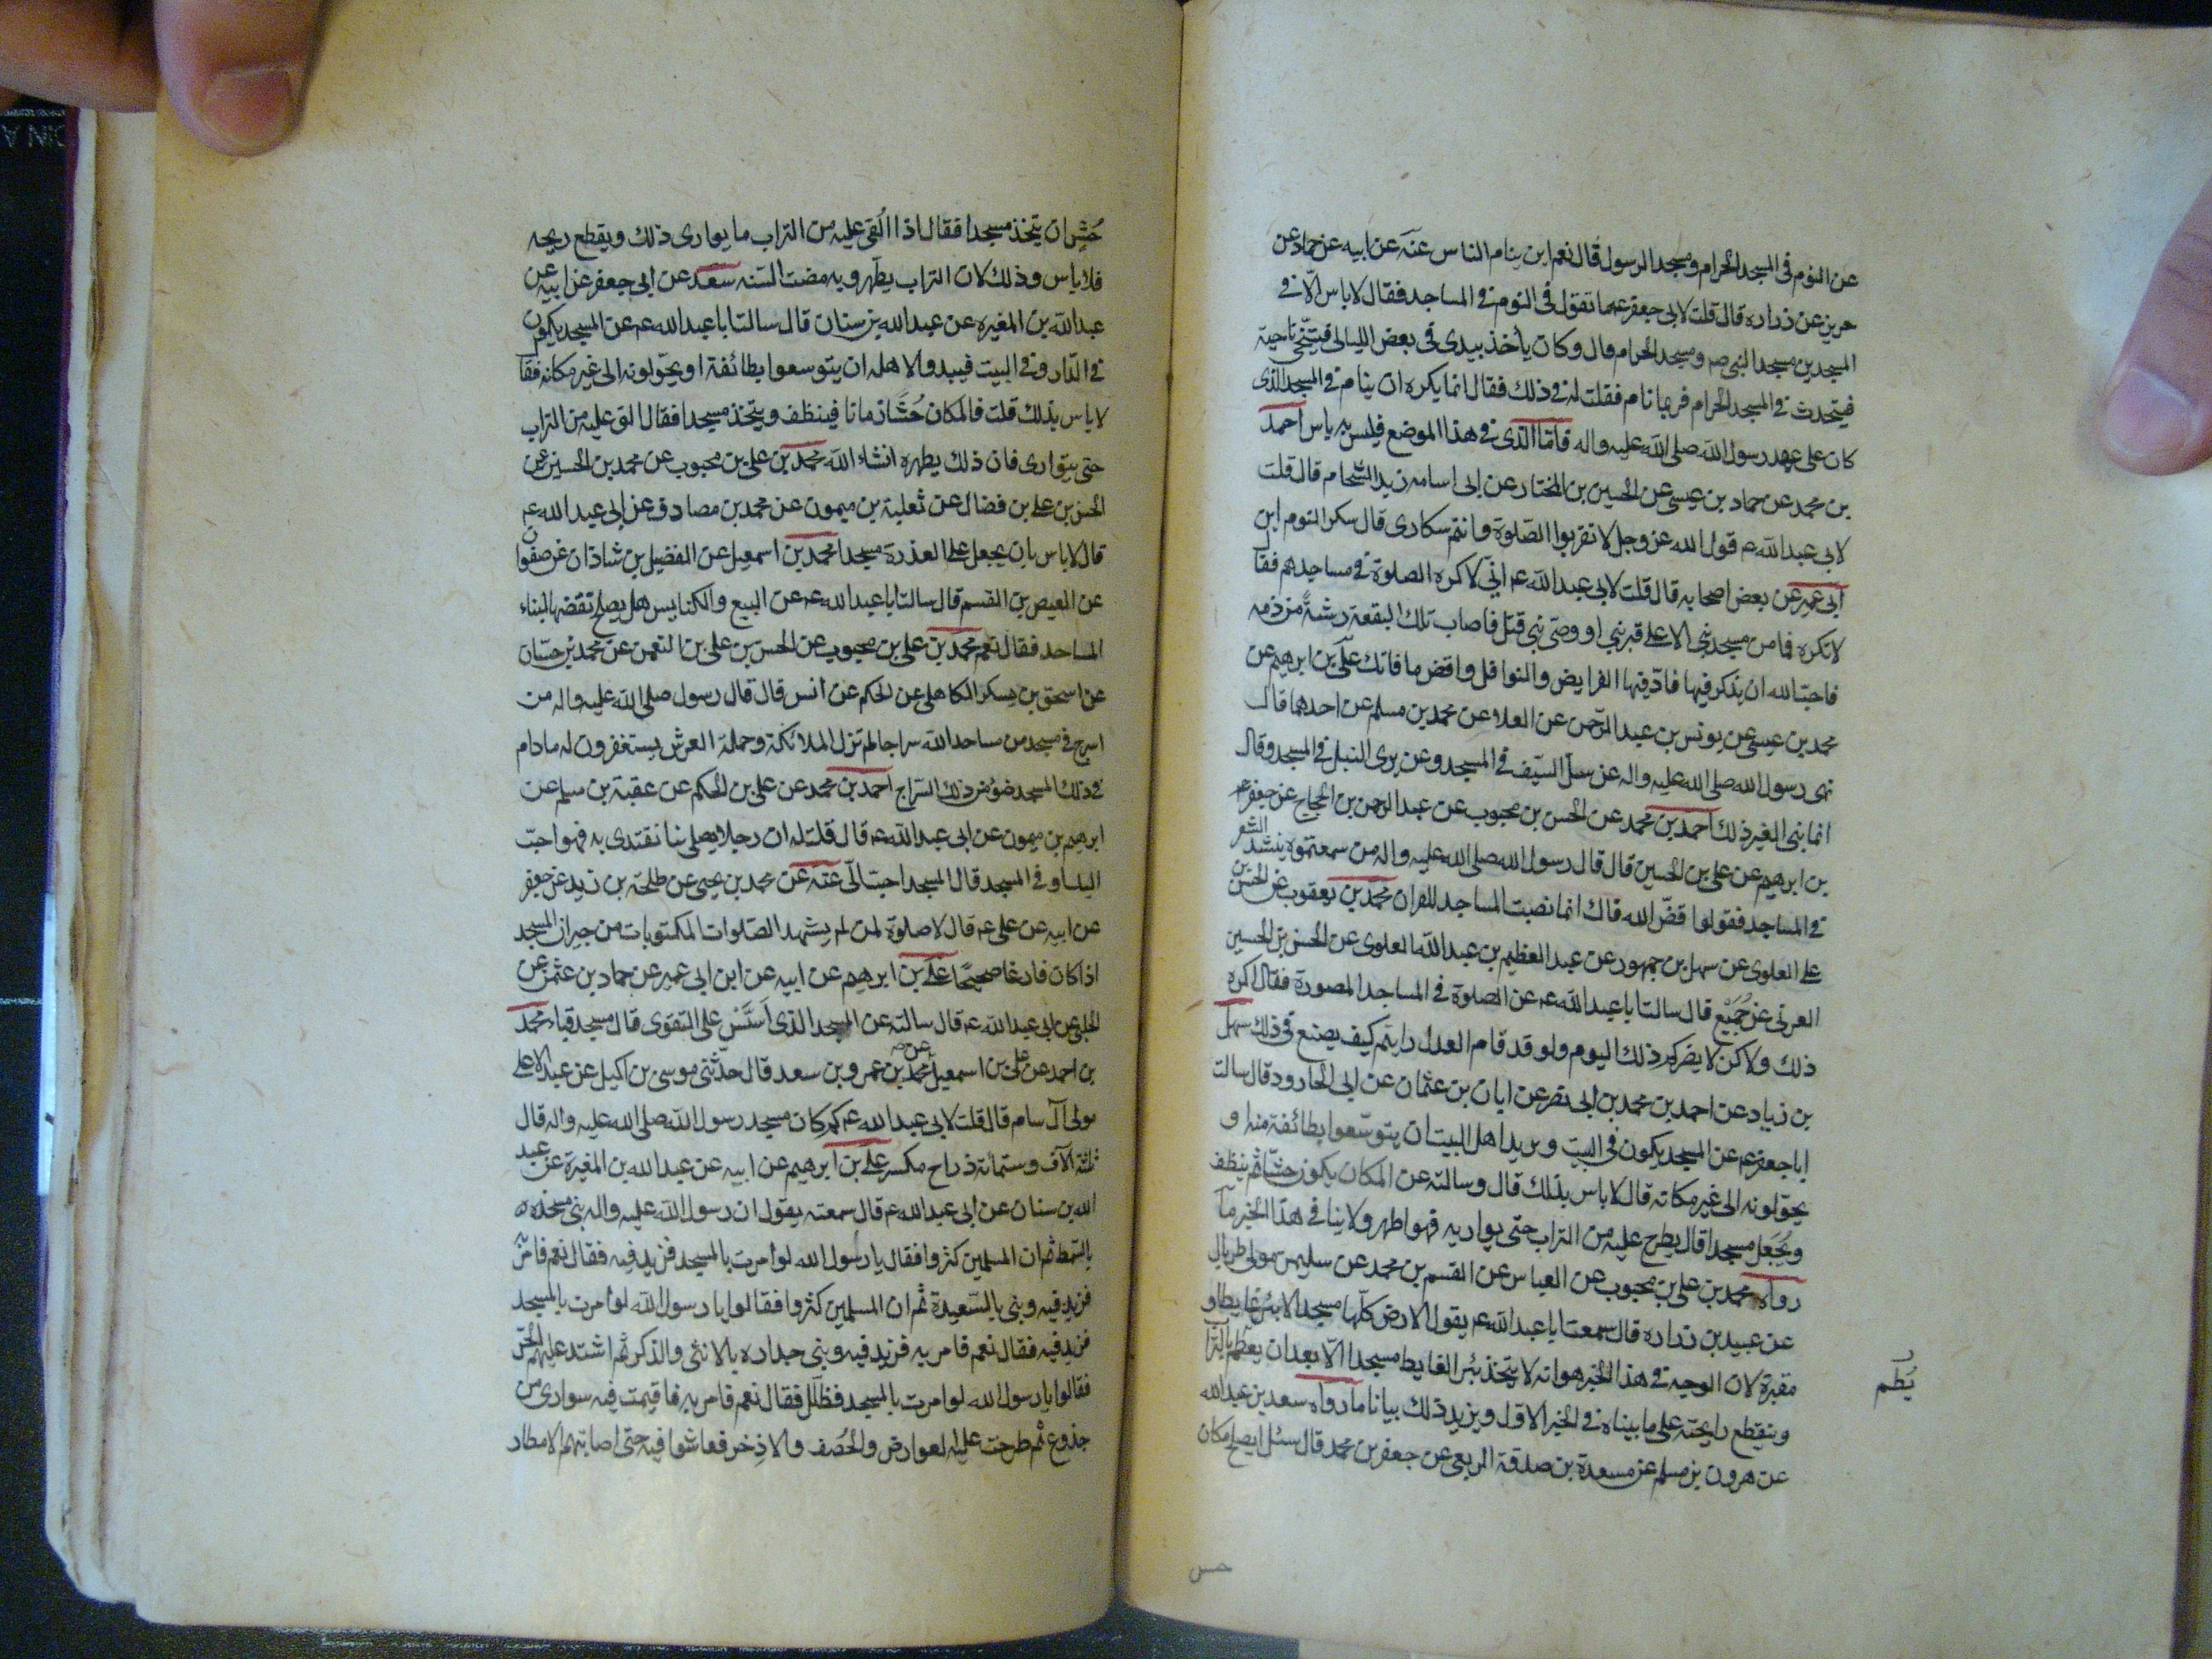 عن النوم فى المسجد الحرام ومسجد الرسول قال نعم اين ينام الناس عنه عن ابيه عن حماد عن
حريز عن زراره قال قلت لابى جعفر عم ما تقول فى النوم فى المساجد فقال لاباس الّا فى
المسجدين مسجد النبى ص ومسجد الحرام قال وكان يأخذ بيدى فى بعض الليالى فيتنحّى ناحية
فيتحدث فى المسجد الحرام فربما نام فقلت له فى ذلك فقال انما يكره ان ينام فى المسجد الذى
كان على عهد رسول الله صلى الله عليه واله فامّا الذى فى هذا الموضع فليس به باس احمد
بن محمد عن حماد بن عيسى عن الحسين بن المختار عن ابى اسامه زيد الشحام قال قلت
لابى عبد الله عم قول الله عز وجل لا تقربوا الصّلوة وانتم سكارى قال سكر النوم ابن
ابى عمير عن بعض اصحابه قال قلت لابى عبد الله عم انّى لاكره الصلوة فى مساجدهم فقا
لاتكره فما من مسجد بنى الا على قبر نبى او وصى نبى قتل فاصاب تلك البقعة رشةً من دمه
فاحبّ الله ان يذكر فيها فادّ فيها الفرايض والنوافل واقض ما فاتك علىّ بن ابرهيم عن
محمد بن عيسى عن يونس بن عبد الرّحمن عن العلا عن محمد بن مسلم عن احدهما قال
نهى رسول الله صلى الله عليه واله عن سلّ السّيف فى المسجد وعن برى النبل فى المسجد وقال
انما بنى لغير ذلك احمد بن محمد عن الحسن بن محبوب عن عبد الرحمن بن الحجاج عن جعفر عم
بن ابرهيم عن على بن الحسين قال قال رسول الله صلى الله عليه واله من سمعتموه ينشد الشعر
فى المساجد فقولوا فضّ الله فاك انما نصبت المساجد للقران محمد بن يعقوب عن الحسن بن
على العلوى عن سهل بن جمهور عن عبد العظيم بن عبد الله العلوى عن الحسن بن الحسين
العرنى عن جُمَيْع قال سالت ابا عبد الله عم عن الصلوة فى المساجد المصورة فقال اكره
ذلك ولاكن لا يضركم ذلك اليوم ولو قد قام العدل رايتم كيف يصنع فى ذلك سهل
بن زياد عن احمد بن محمد بن ابى نصر عن ابان بن عثمان عن ابى الجارود قال سالت
ابا جعفر عم عن المسجد يكون فى البيت ويريد اهل البيت ان يتوسّعوا بطائفة منه او
يحوّلونه الى غير مكانه قال لاباس بذلك قال وسالته عن المكان يكون حشّا ثم ينظف
ويُجعَل مسجدا قال يطرح عليه من التراب حتى يواريه فهو اطهر ولا ينافى هذا الخبر ما
رواه محمد بن على بن محبوب عن العباس عن القسم بن محمد عن سليمن مولى طربال
عن عبيد بن زراره قال سمعت ابا عبد الله عم يقول الارض كلّها مسجد الا بئر غايط او
مقبرة لان الوجه فى هذا الخبر هو انه لا يتخذ بئر الغايط مسجدا الّا بعد ان يطم بالتّرا
وينقطع رايحته على ما بيناه فى الخبر الاول ويزيد ذلك بيانا ما رواه سعد بن عبد الله
عن هرون بن مسلم عن مسعدة بن صدقة الربعى عن جعفر بن محمد قال سئل ايصلح مكان
يُطَم
حش
حُشِّ ان يتخذ مسجدا فقال اذا اُلقى عليه من التراب ما يوارى ذلك ويقطع ريحه
فلاباس وذلك لان التراب يطهر وبه مضت السّنه سعد عن ابى جعفر عن ابيه عن
عبد الله بن المغيره عن عبد الله بن سنان قال سالت ابا عبد الله عم عن المسجد يكون
فى الدّار وفى البيت فيبدو لاهله ان يتوسعوا بطائفة او يحوّلونه الى غير مكانه فقا
لاباس بذلك قلت فالمكان حُشّا زمانا فينظف ويتخذ مسجدا فقال الق عليه من التراب
حتى يتوارى فان ذلك يطهره انشاء الله محمد بن على بن محبوب عن محمد بن الحسين عن
الحسن بن على بن فضال عن ثعلبة بن ميمون عن محمد بن مصادف عن ابى عبد الله عم
قال لاباس بان يجعل على العذرة مسجدا محمد بن اسمعيل عن الفضيل بن شاذان عن صفوان
عن العيص بن القسم قال سالت ابا عبد الله عم عن البيع والكنايس هل يصلح نقضها لبناء
المساحد فقال نعم محمد بن على بن محبوب عن الحسن بن على بن النعمن عن محمد بن حسّان
عن اسحق بن يسكر الكاهلى عن الحكم عن انس قال قال رسول صلى الله عليه واله من
اسرج فى مسجد من مساحد الله سراجا لم تزل الملائكة وحملة العرش يستغفرون له مادام
فى ذلك المسجد ضوء من ذلك السّراج احمد بن محمد عن على بن الحكم عن عقبة بن مسلم عن
ابرهيم بن ميمون عن ابى عبد الله عم قال قلت له ان رجلا يصلى بنا نقتدى به فهو احبّ
اليك او فى المسجد قال المسجد احبّ الىّ عنه عن محمد بن يحيى عن طلحة بن زيد عن جعفر
عن ابيه عن على عم قال لاصلوة لمن لم يشهد الصّلوات المكتوبات من جيران المسجد
اذا كان فارغا صحيحًا على بن ابرهيم عن ابيه عن ابن ابى عمير عن حماد بن عثمن عن
الحلبى عن ابى عبد الله عم قال سالته عن المسجد الذى اُسّسَ على التقوى قال مسجد قباء محمد
بن احمد عن على بن اسمعيل عن محمد بن عمرو بن سعد قال حدّثنى موسى بن اكيل عن عبد الاعلى
مولى آل سام قال قلت لابى عبد الله عم كم كان مسجد رسول الله صلى الله عليه واله قال
ثلثة آلاف وستمائة ذراع مكسر على بن ابرهيم عن ابيه عن عبد الله بن المغيرة عن عبد
الله بن سنان عن ابى عبد الله عم قال سمعته يقول ان رسول الله عليه واله بنى مسجده
بالسّمط ثم ان المسلمين كثروا فقال يا رسول الله لو امرت بالمسجد فزيد فيه فقال نعم فامر به
فزيد فيه وبنى بالسّعيدة ثم ان المسلمين كثروا فقالوا يا رسول الله لو امرت بالمسجد
فزيد فيه فقال نعم فامر به فزيد فيه وبنى جداره بالانثى والذكر ثم اشتد عليهم الحرّ
فقالوا يا رسول الله لو امرت بالمسجد فظلّل فقال نعم فامر به فاقيمت فيه سوارى من
جذوع ثم طرحت عليه العوارض والخُصَف والاذِخر فعاشوا فيه حتى اصابتهم الامطار